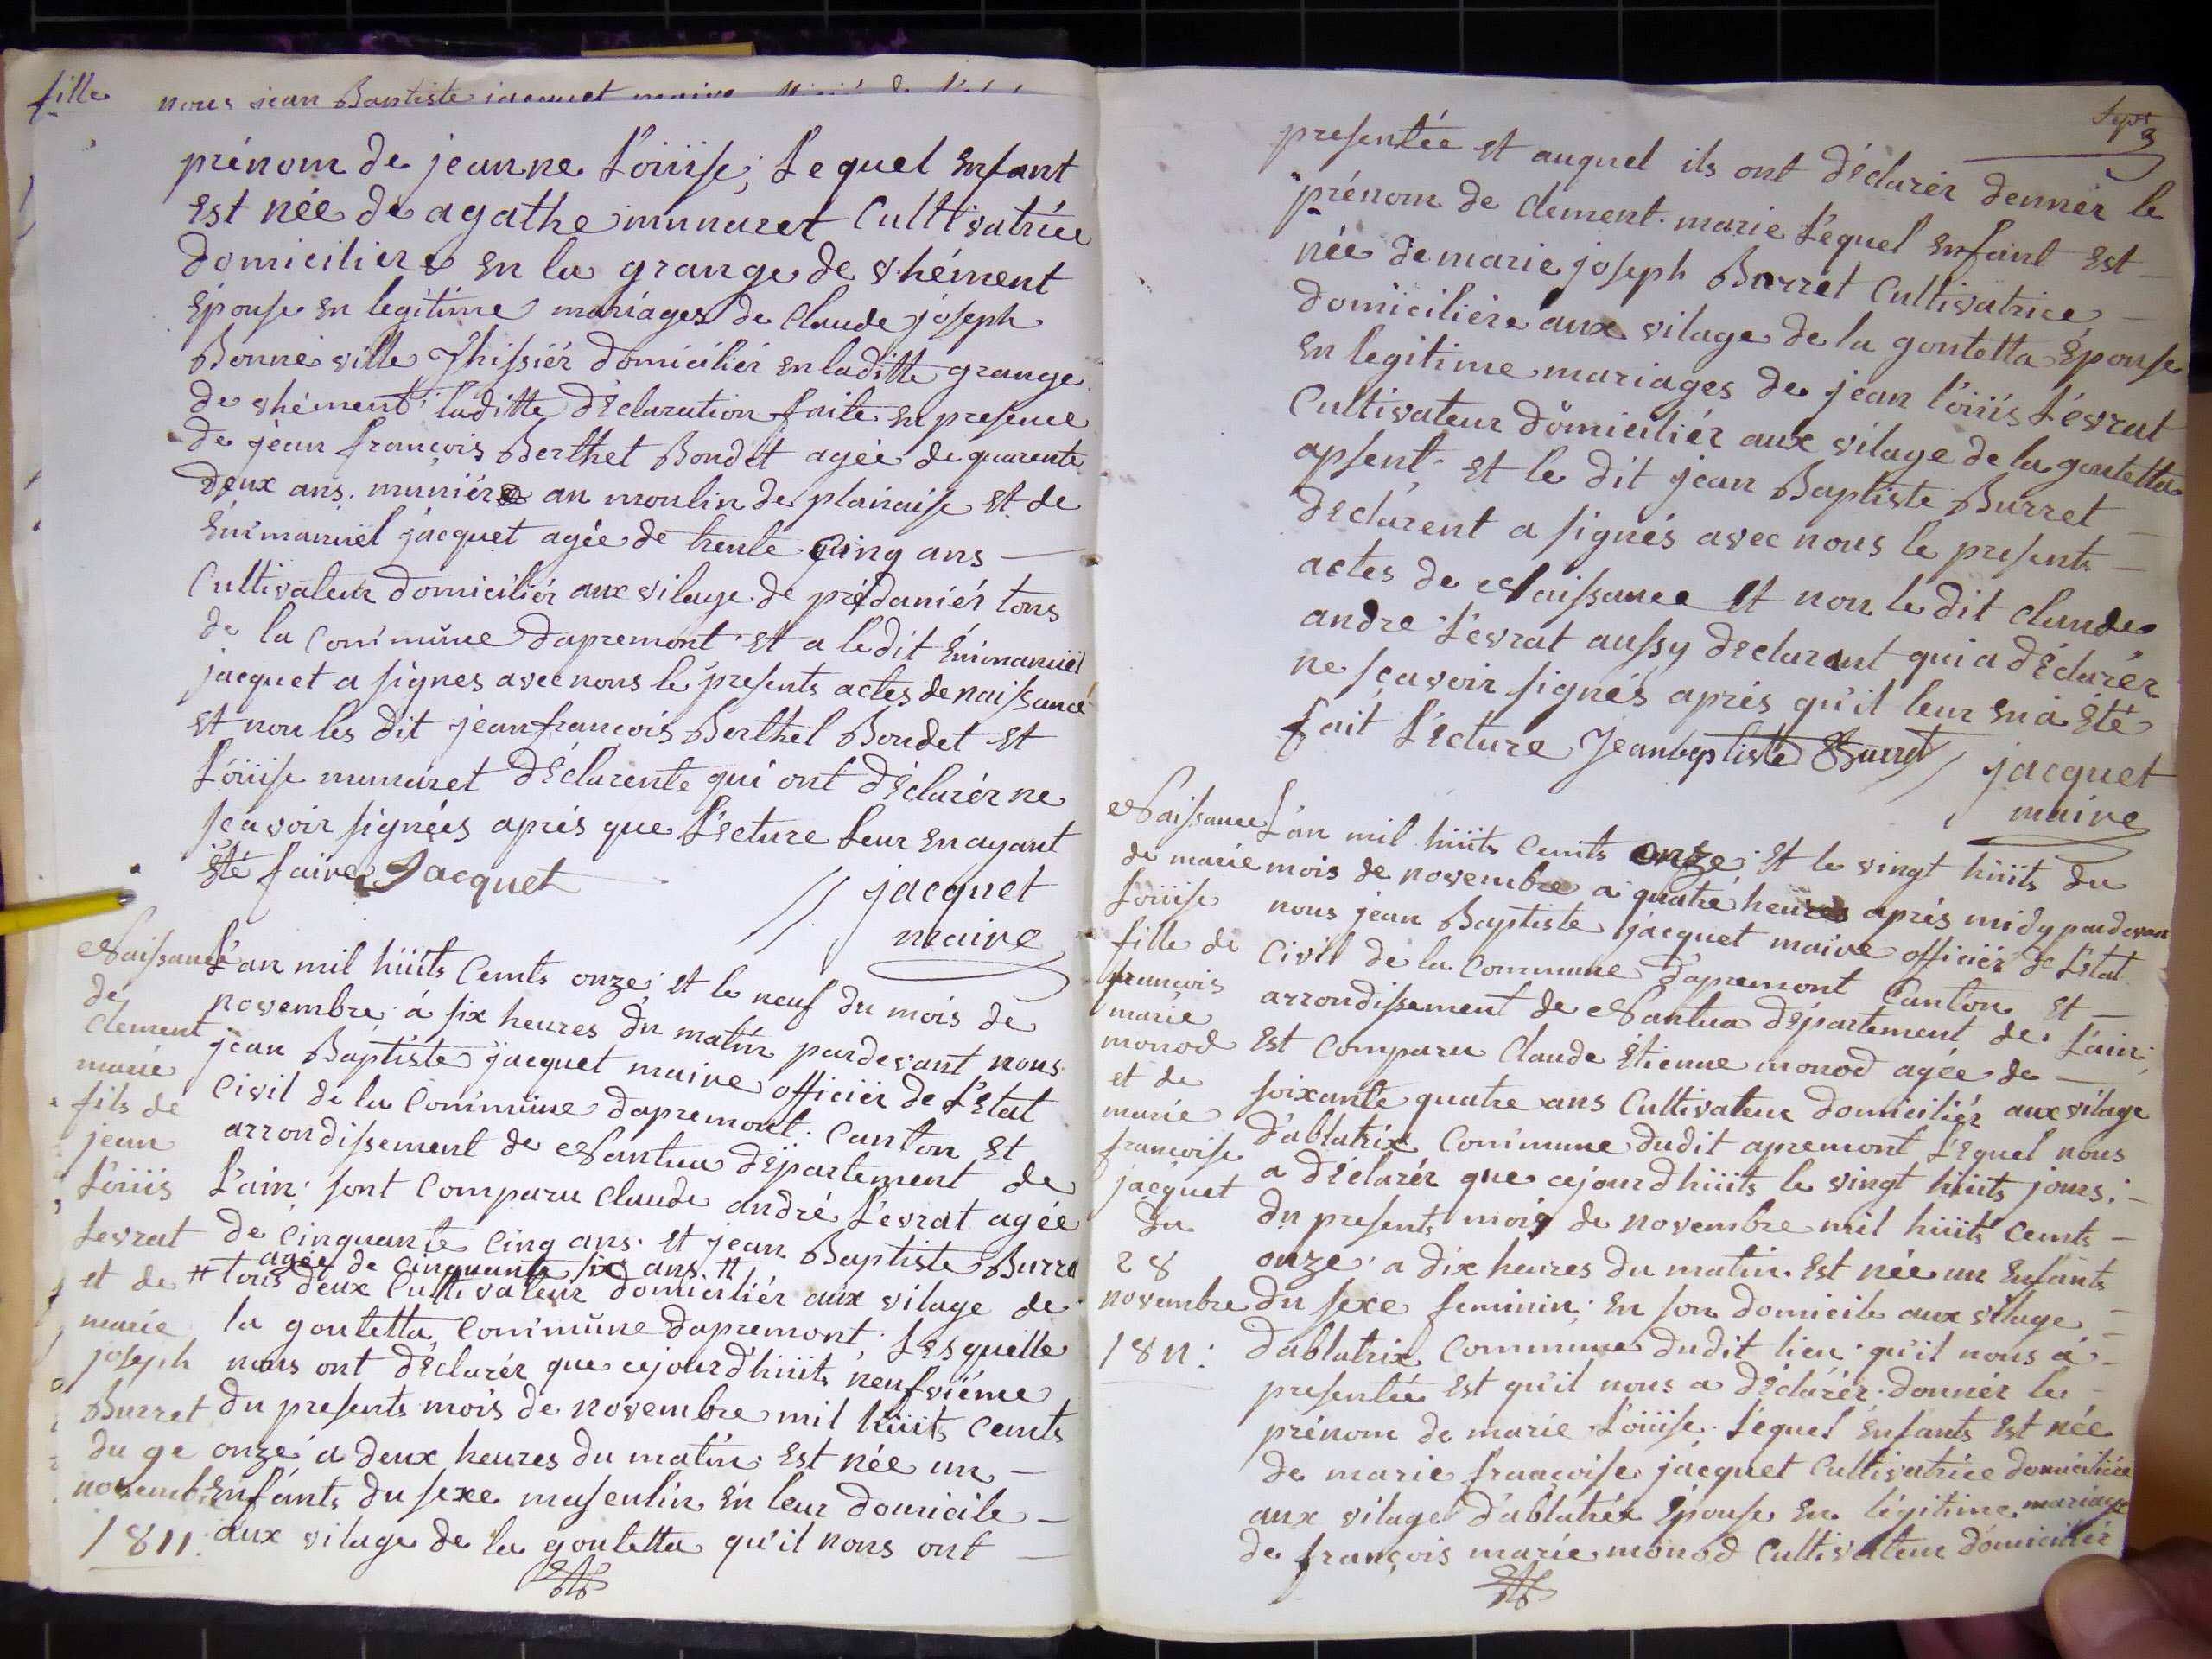 fille
nous jean Baptiste jacquet maire
prénom de jeanne Loüise; Lequel Enfant
Est née de agathe munaret Cultivatrice
Domiciliere En la grange de shément
Epouse En legitime mariages de Claude joseph
Bonneville Jhissiér Domiciliér En laditte grange
de shément; laditte Déclaration faite En presence
de jean françois Berthet Bondet agée de quarente
Deux ans. muniér au moulin de plainaise Et de
Emmanuël jacquet agée de trente Cinq ans —
Cultivateur Domiciliér aux vilage de prédaniér tous
de la Commune Dapremont Et a ledit Emmanuël
jacquet a signes avec nous le presents actes de naissance
Et non les Dit jean françois Berthet Bondet Et
Loüise munaret Déclarente qui ont Déclarér ne
sçavoir signées aprés que Lecture Leur En ayant
Eté faire Jacquet
// jacquet
maire
Naissance
de
Clement
marie
fils de
jean
Loüis
Levrat
et de
marie
joseph
Burret
du 9e
novembre
1811.
L'an mil hüits Cents onze; Et le neuf du mois de
novembre; á six heures du matin pardevant nous
jean Baptiste jacquet maire officiér de L'Etat
Civil de la Commune Dapremont; Canton Et
arrondissement de Nantua Département de
L'ain; sont Comparu Claude andré Levrat agée
de Cinquante Cinq ans. Et jean Baptiste Burret
agée de Cinquante six ans #
# tous deux Cultivateur Domiciliér aux vilage de
la goutetta Commune Dapremont; Lesquelle
nous ont Déclarér que cejourd'hüits neufviéme
du presents mois de novembre mil hüits Cents
onze a deux heures du matin; Est née un —
Enfants du sexe masculin En leur domicile —
aux vilage de la goutetta qu'il nous ont —
Sept
3
presentée Et auquel ils ont Déclarér dennér le
prénom de Clement. marie Lequel Enfant Est —
née de marie joseph Burret Cultivatrice —
Domiciliere aux vilage de la goutetta Epouse
En legitime mariages de jean Loüis Levrat
Cultivateur Domiciliér aux vilage de la goutetta
apsent; Et le dit jean Baptiste Burret —
Déclarent a signés avec nous le presents —
actes de Naissance Et non le dit Claude
andre Levrat aussy Declarant qui a Déclarér
ne sçavoir signés aprés qu'il leur En a Eté
fait Lecture Jeanbaptiste Burret // jacquet
maire
Naissance
de marie
Loüise
fille de
françois
marie
monod
et de
marie
françoise
jacquet
du
28
novembre
1811:
L'an mil hüits Cents onze; Et le vingt hüits du
mois de novembre a quatre heures aprés midy pardevan
nous jean Baptiste jacquet maire officiér de L'Etat
Civil de la Commune Dapremont Canton Et —
arrondissement de Nantua Département de L'ain;
Est Comparu Claude Etienne monod agée de —
soixante quatre ans Cultivateur Domiciliér aux vilage
D'ablatrix Commune dudit apremont Lequel nous
a Déclarér que cejourd'hüits le vingt hüits jours; —
du presents mois de novembre mil hüits Cents —
onze; a dix heures du matin. Est née un Enfants
du sexe feminin; En son domicile aux vilage —
Dablatrix Commune dudit lieu; qu'il nous a —
presentée Est qu'il nous a Déclarér; donnér le —
prénom de marie Loüise. Lequel Enfants Est née
de marie françoise jacquet Cultivatrice domiciliée
aux vilage D'ablatrix Epouse En légitime mariage
de françois marie monod Cultivateur Domiciliér